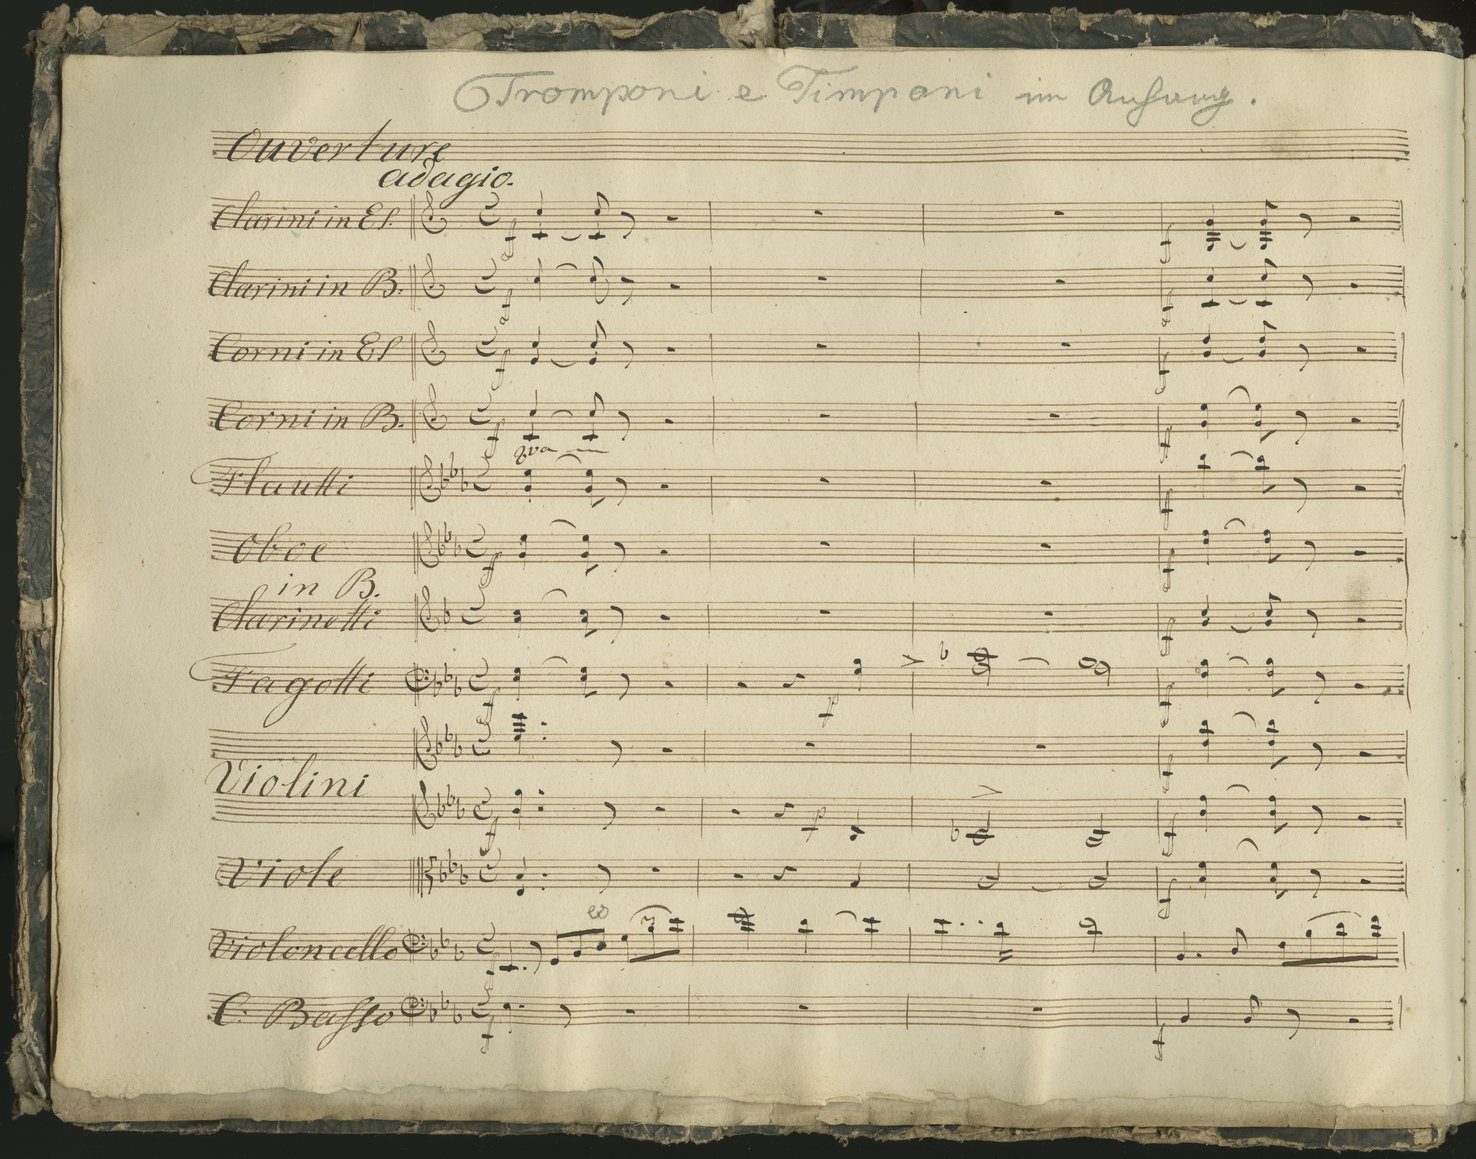 Tromponi e Timpani im Anfang.
Ouverture
adagio.
Clarini in Es.
Clarini in B.
Corni in Es
Corni in B.
8va
Flautti
Oboe
in B.
Clarinetti
Fagotti
Violini
Viole
Violoncello
C. Basso